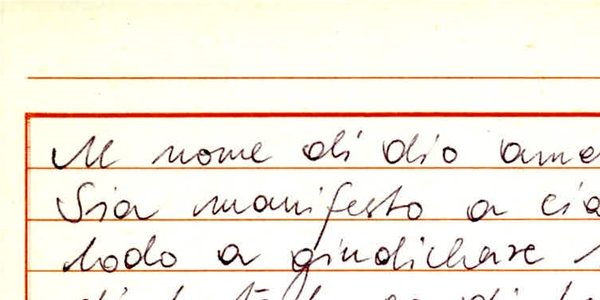 Al nome di dio ame
Sia manifesto a cia
lodo a giudichare
di